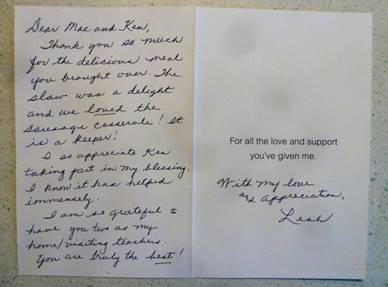 Dear Mae and Ken,
Thank you so much
for the delicious meal
you brought over. The
slaw was a delight
and we loved the
sausage casserole! It
is a keeper!
I so appreciate Ken
taking part in my blessing.
I know it has helped
immensely.
I am so grateful to
have you two as my
home/visiting teachers.
You are truly the best!
For all the love and support
you've given me.
With my love
and appreciation,
Leah